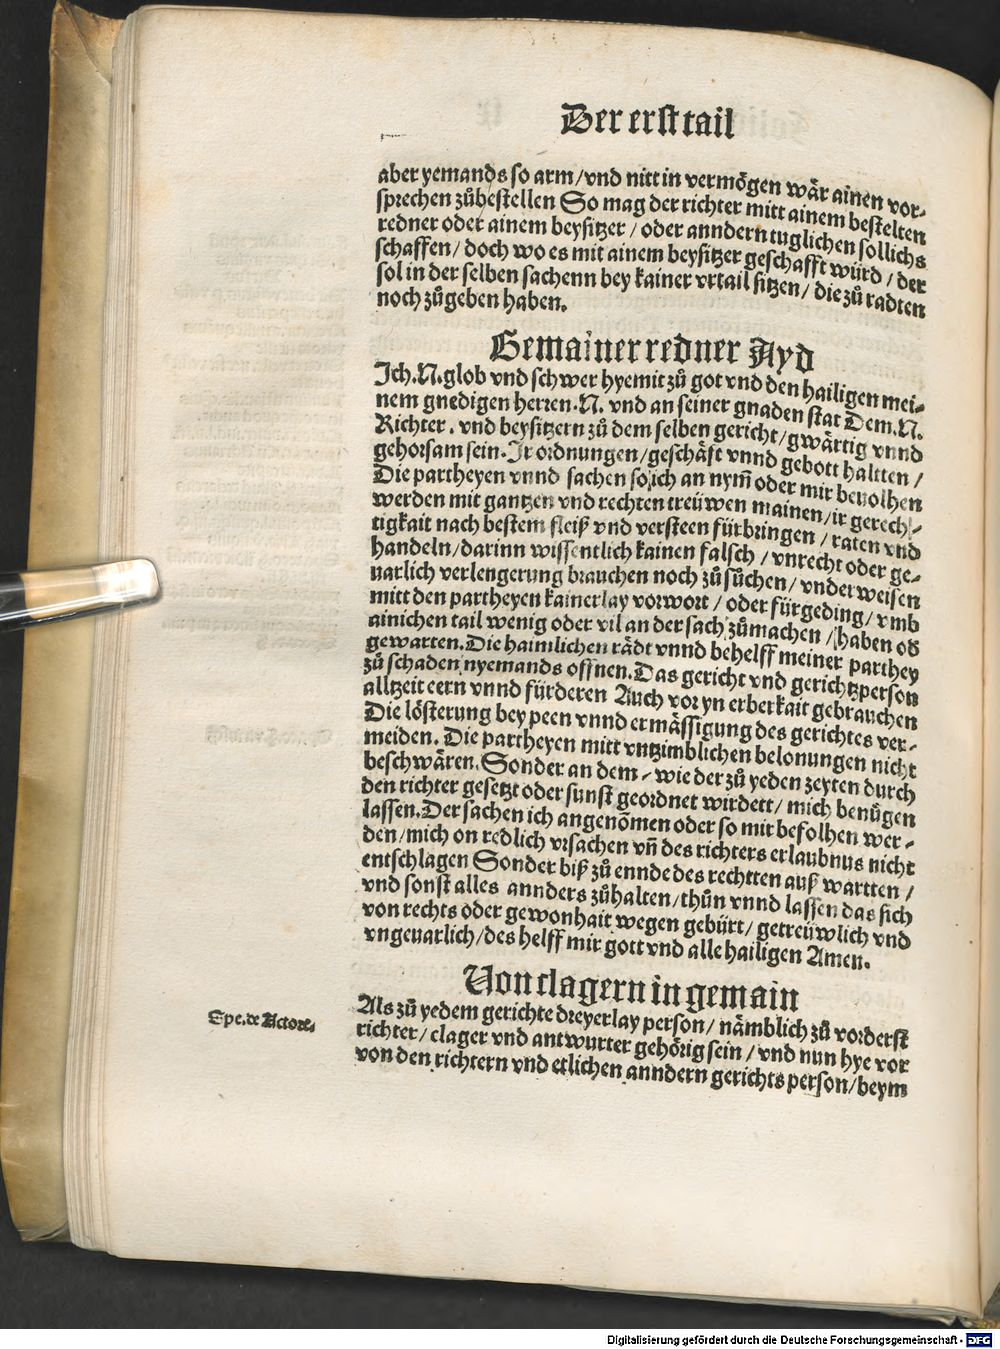 Der erst tail
aber yemands so arm / vnd nitt in vermögen wär ainen vor-
sprechen zůbestellen So mag der richter mitt ainem bestelten
redner oder ainem beysitzer / oder anndern tuglichen sollichs
schaffen / doch wo es mit ainem beysitzer geschafft würd / der
sol in der selben sachenn bey kainer vrtail sitzen / die zů radten
noch zůgeben haben.
Gemainer redner Ayd
Ich .N. glob vnd schwer hyemit zů got vnd den hailigen mei-
nem gnedigen herren .N. vnd an seiner gnaden stat Dem .N.
Richter . vnd beysitzern zů dem selben gericht / gwärtig vnnd
gehorsam sein. Ir ordnungen / geschäft vnnd gebott haltten /
Die partheyen vnnd sachen so ich an nym̄ oder mir beuolhen
werden mit gantzen vnd rechten treüwen mainen / ir gerech-
tigkait nach bestem fleiß vnd versteen fürbringen / raten vnd
handeln / darinn wissentlich kainen falsch / vnrecht oder ge-
uarlich verlengerung brauchen noch zůsůchen / vnderweisen
mitt den partheyen kainerlay vorwort / oder fürgeding / vmb
ainichen tail wenig oder vil an der sach zůmachen / haben od
gewarten. Die haimlichen rädt vnnd behelff meiner parthey
zů schaden nyemands offnen. Das gericht vnd gerichtzperson
alltzeit eern vnnd fürderen Auch vor yn erberkait gebrauchen
Die lösterung bey peen vnnd ermässigung des gerichtes ver-
meiden. Die partheyen mitt vntzimblichen belonungen nicht
beschwären. Sonder an dem - wie der zů yeden zeyten durch
den richter gesetzt oder sunst geordnet wirdett / mich benügen
lassen. Der sachen ich angenōmen oder so mir befolhen wer-
den / mich on redlich vrsachen vn̄ des richters erlaubnus nicht
entschlagen Sonder biß zů ennde des rechtten auß wartten /
vnd sonst alles annders zůhalten / thůn vnnd lassen das sich
von rechts oder gewonhait wegen gebürt / getreüwlich vnd
vngeuarlich / des helff mir gott vnd alle hailigen Amen.
Von clagern in gemain
Spe. de Actore.
Als zů yedem gerichte dreyerlay person / nämblich zů vorderst
richter / clager vnd antwurter gehörig sein / vnd nun hye vor
von den richtern vnd etlichen anndern gerichts person / beym
Digitalisierung gefördert durch die Deutsche Forschungsgemeinschaft - DFG